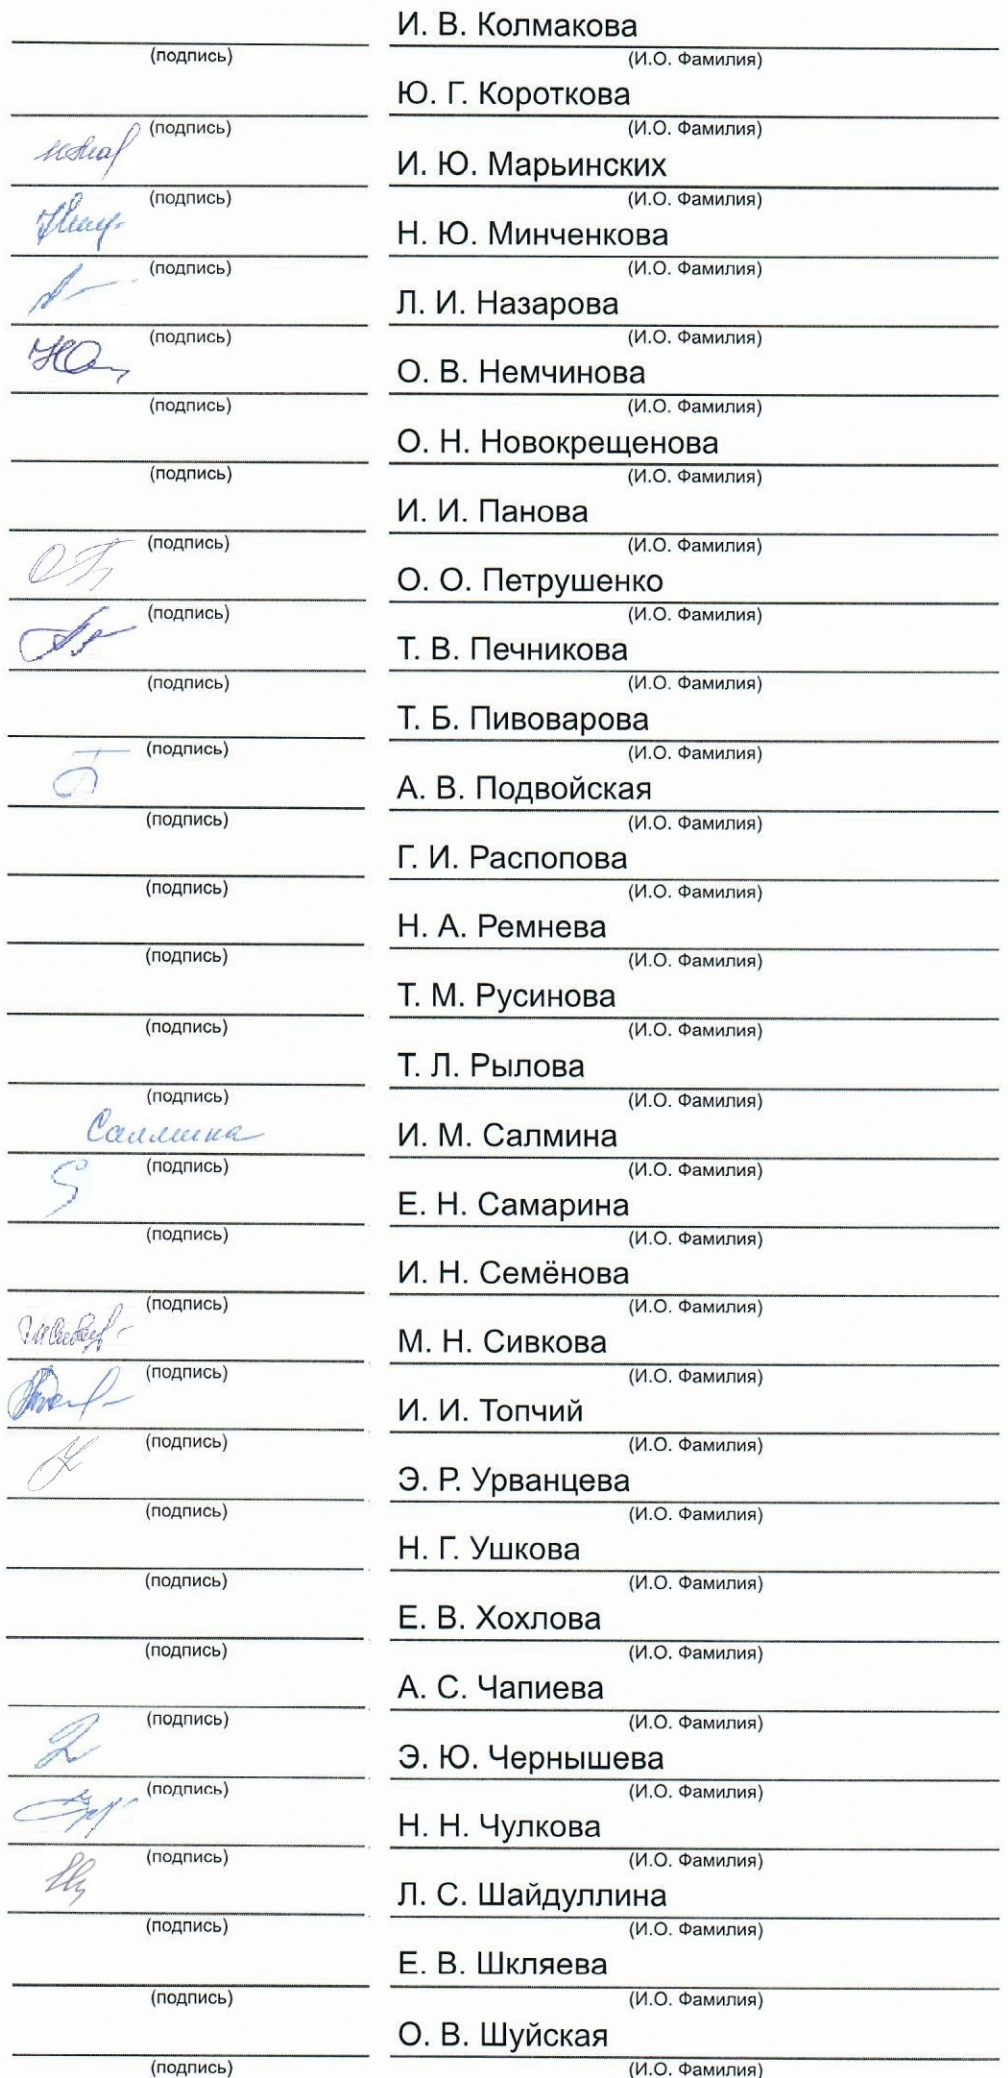 И. В. Колмакова
(подпись) (И.О. Фамилия)
Ю. Г. Короткова
(подпись) (И.О. Фамилия)
И. Ю. Марьинских
(подпись) (И.О. Фамилия)
Н. Ю. Минченкова
(подпись) (И.О. Фамилия)
Л. И. Назарова
(подпись) (И.О. Фамилия)
О. В. Немчинова
(подпись) (И.О. Фамилия)
О. Н. Новокрещенова
(подпись) (И.О. Фамилия)
И. И. Панова
(подпись) (И.О. Фамилия)
О. О. Петрушенко
(подпись) (И.О. Фамилия)
Т. В. Печникова
(подпись) (И.О. Фамилия)
Т. Б. Пивоварова
(подпись) (И.О. Фамилия)
А. В. Подвойская
(подпись) (И.О. Фамилия)
Г. И. Распопова
(подпись) (И.О. Фамилия)
Н. А. Ремнева
(подпись) (И.О. Фамилия)
Т. М. Русинова
(подпись) (И.О. Фамилия)
Т. Л. Рылова
(подпись) (И.О. Фамилия)
Салмина И. М. Салмина
(подпись) (И.О. Фамилия)
Е. Н. Самарина
(подпись) (И.О. Фамилия)
И. Н. Семёнова
(подпись) (И.О. Фамилия)
М. Н. Сивкова
(подпись) (И.О. Фамилия)
И. И. Топчий
(подпись) (И.О. Фамилия)
Э. Р. Урванцева
(подпись) (И.О. Фамилия)
Н. Г. Ушкова
(подпись) (И.О. Фамилия)
Е. В. Хохлова
(подпись) (И.О. Фамилия)
А. С. Чапиева
(подпись) (И.О. Фамилия)
Э. Ю. Чернышева
(подпись) (И.О. Фамилия)
Н. Н. Чулкова
(подпись) (И.О. Фамилия)
Л. С. Шайдуллина
(подпись) (И.О. Фамилия)
Е. В. Шкляева
(подпись) (И.О. Фамилия)
О. В. Шуйская
(подпись) (И.О. Фамилия)